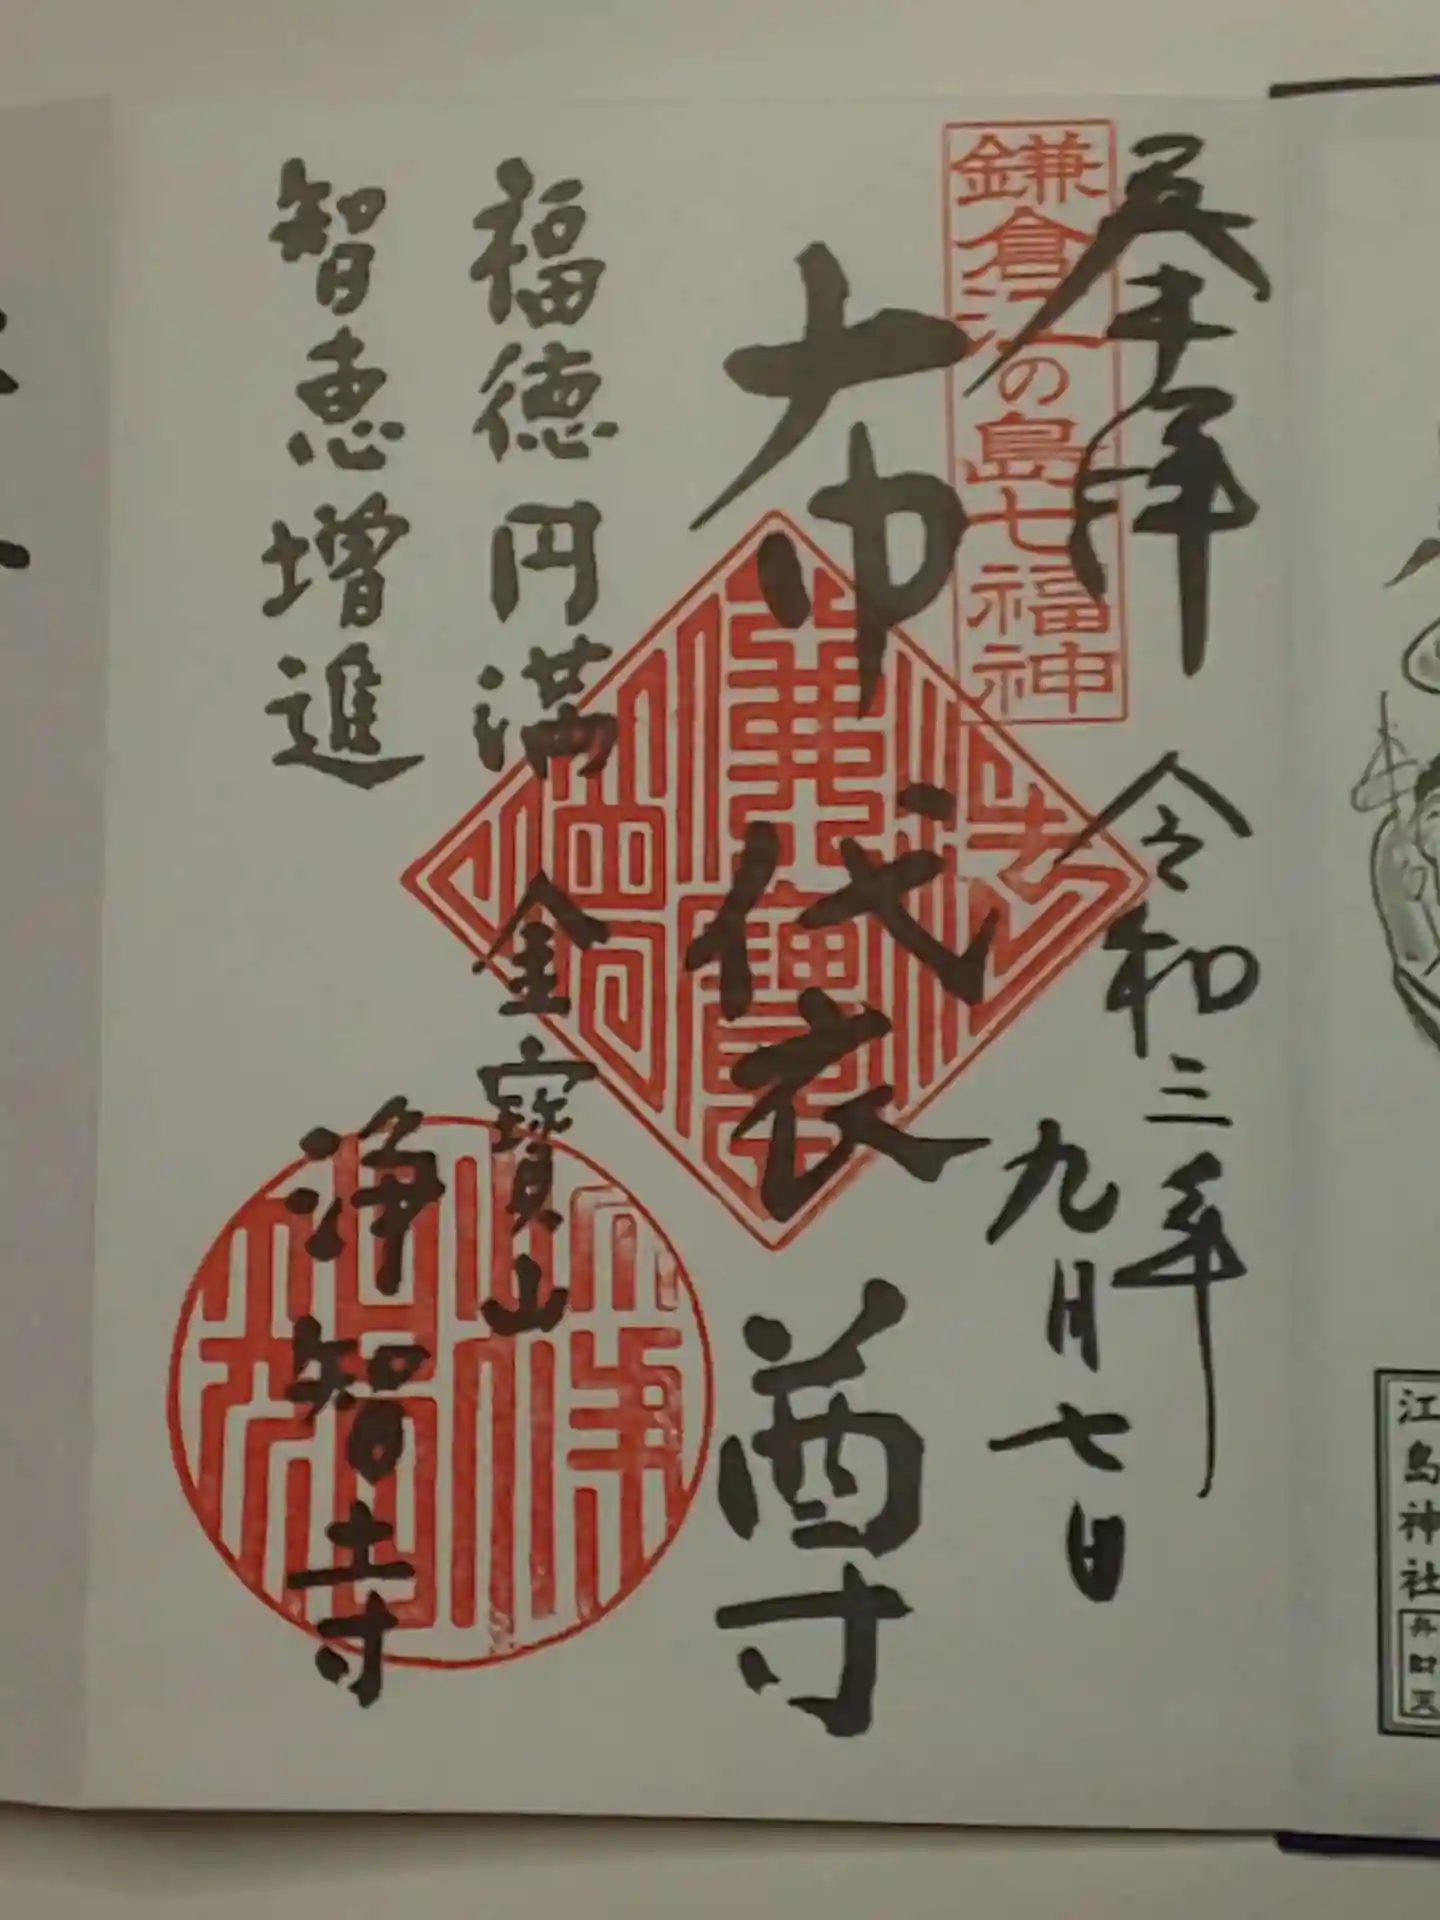 奉拝
令和三年
九月七日
鎌倉江の島七福神
布袋尊
福徳円満
智恵増進
金寶山
浄智寺
江島神社